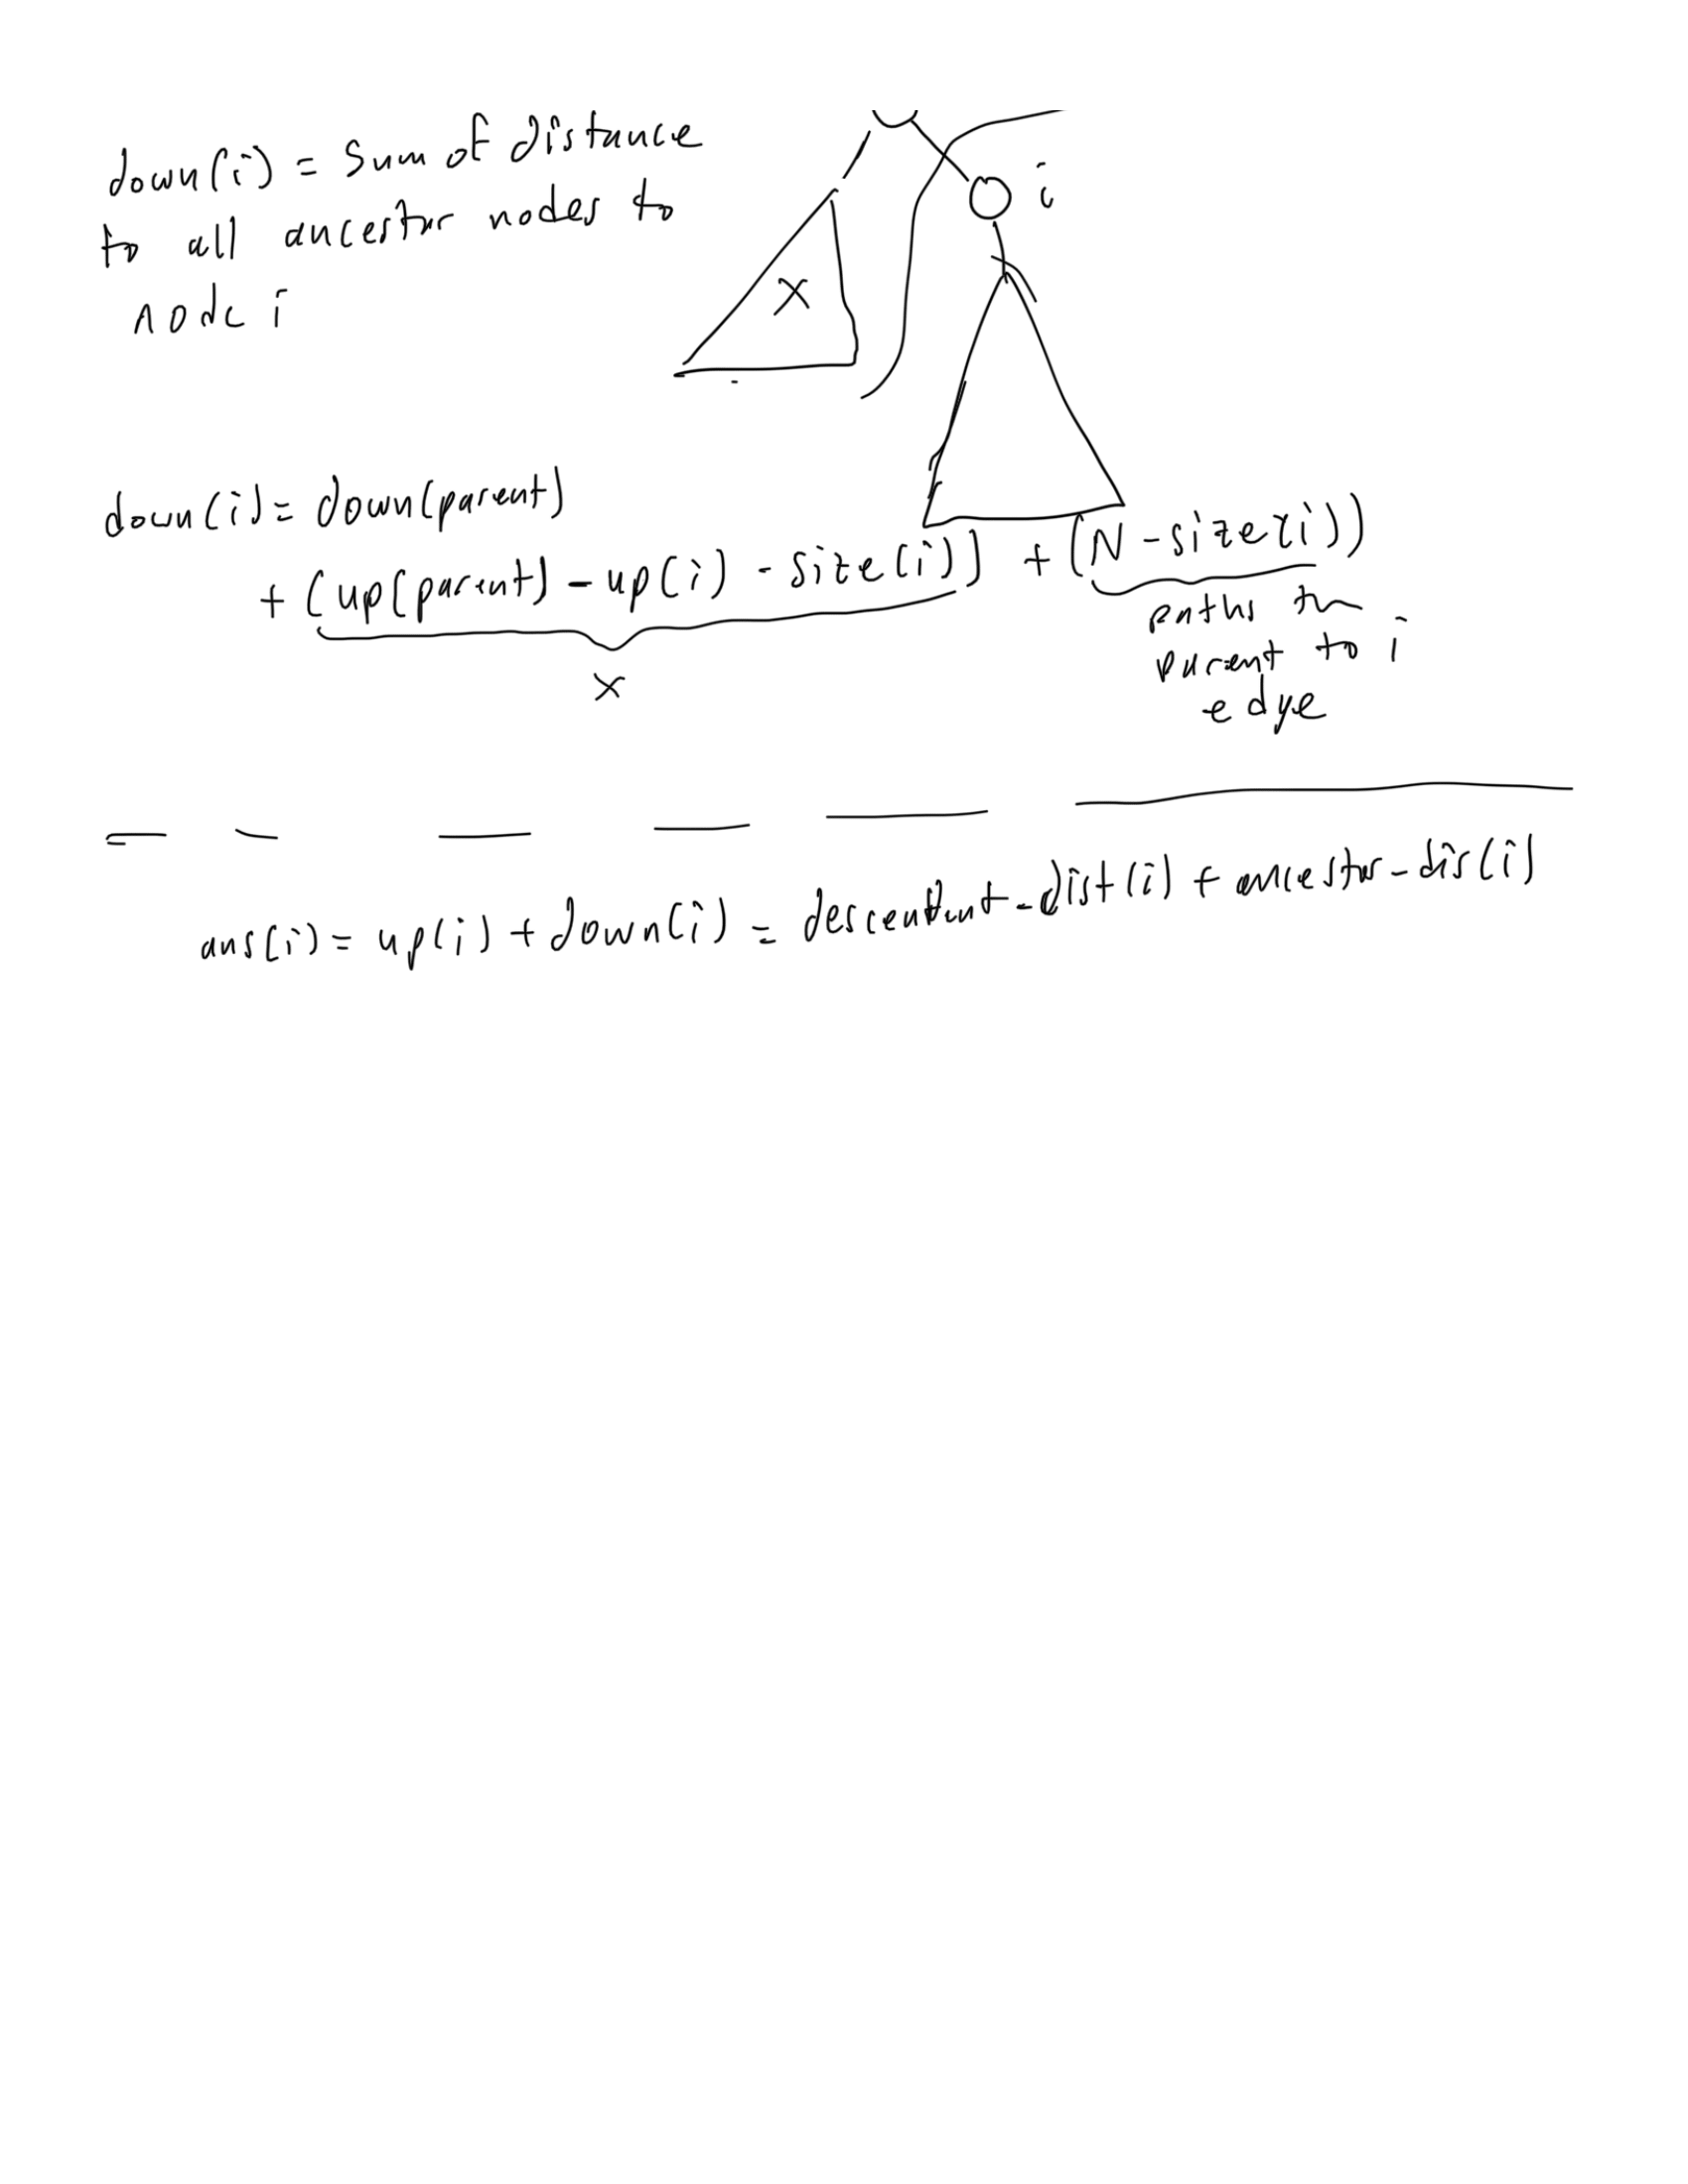 down(i) = sum of distance
to all ancestor nodes to
node i
i
X
down(i) = down(parent)
+ (up(parent) - up(i) - size(i)) + (N - size(i))
X
paths thr
parent to i
edge
ans(i) = up(i) + down(i) = descendant-dist(i) + ancestor-dis(i)